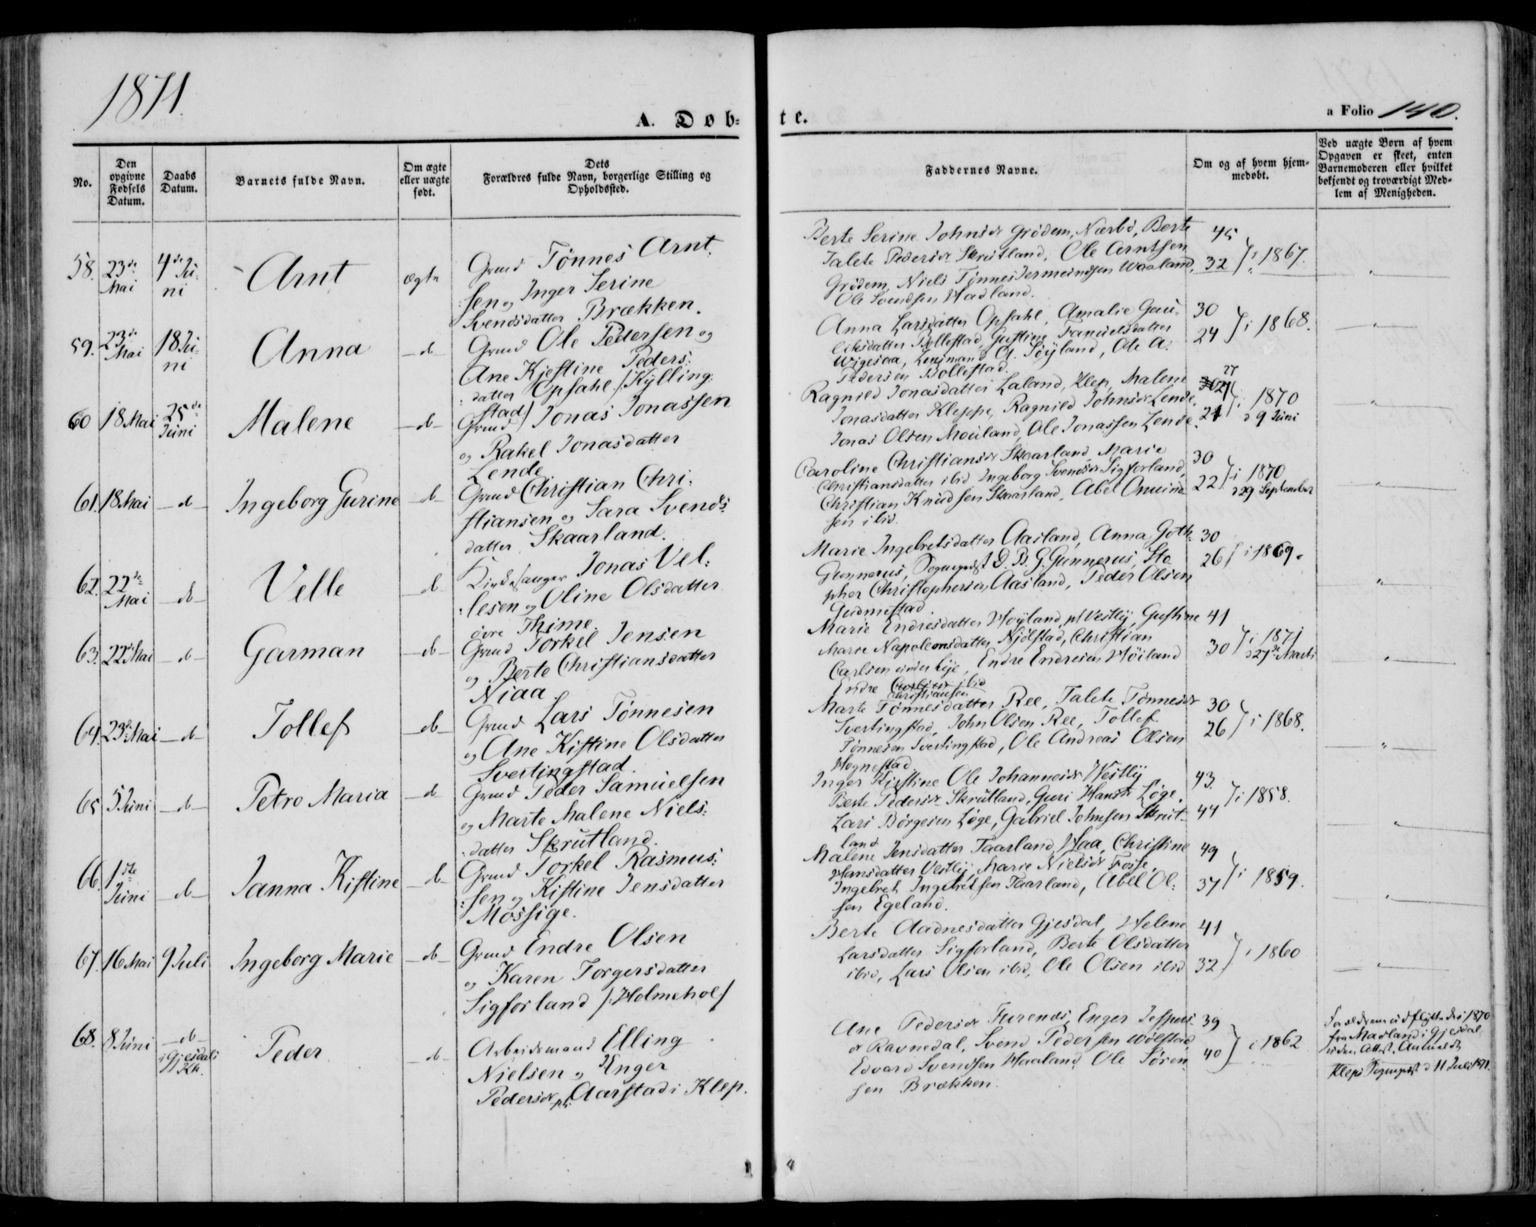 1871.
A. Døb-
te.
a Folio 140.
No.
Den opgivne Fødsels Datum.
Daabs Datum.
Barnets fulde Navn.
Om ægte eller uægte født.
Dets
Forældres fulde Navn, borgerlige Stilling og
Opholdssted.
Faddernes Navne.
Om og af hvem hjem-
medøbt.
Ved uægte Børn af hvem
Opgaven er skeet, enten
Barnemoderen eller hvilket
bekjendt og troværdigt Med-
lem af Menigheden.
58. 23de Mai 4de Juni Arnt ægte
Grmd Tønnes Arnt-
sen og Inger Serine
Svendsdatter Brækken.
Berte Serine Johnsdr Grødem, Nærbø, Berte 45
Talete Pedersdr Skrutland, Ole Arntsen
Grødem, Niels Tønnes Waaland, 32 i 1867.
Ole Svendsen Hadland.
59. 23de Mai 18 Juni Anna do
Grmd Ole Pedersen og
Ane Kjestine Peders-
datter Opsahl /Kylling-
stad/
Anna Larsdatter Opsahl, Amalie Gau- 30
Bollestad, Gustine Danielsdatter
Wigesaa, Lensmand Søyland, Ole A. 24 i 1868.
Pedersen Bollestad.
60 18 Mai 25de Juni Malene do
Grmd Jonas Jonassen
og Rakel Jonasdatter
Lende
Ragnild Jonasdatter Laland, Klep, Malene 27
Jonasdatter Kleppe, Ragnild Johnsdr Lende, i 1870
Jonas Olsen Mouland, Ole Jonassen Lende. 21 d 9 Juni
61. 18 Mai do Ingeborg Gurine do
Grmd Christian Chri-
stiansen og Sara Svends-
datter Skaarland.
Caroline Christiansdr Skaarland, Marie 30
Christiansdatter ibid, Ingeborg Svendsdr Sigforland, i 1870
Christian Knudsen Skaarland, Abel Omund- 22 d 29 September
sen ibid.
62. 22de Mai do Velle do
Kirkesanger Jonas Vel-
lesen og Oline Olsdatter
øvre Thime
Marie Ingebretsdatter Aasland, Anna Goth. 30
Gunnerus, Sogneprest D. B. G. Gunnerus, Sto- 26 i 1869.
pher Christophersen Aasland, Peder Olsen
Gudmestad
63. 22de Mai do Garman do
Grmd Torkel Jensen
og Berte Christiansdatter
Niaa
Marie Endresdatter Høyland pt Vestly, Gustine 41
Marie Napoleonsdatter Njølstad, Christian
Carlsen Lye, Endre Endresen Høiland 30 i 1871 d 27de Marts
Endre Christiansen ibid
64. 23de Mai do Tollef do
Grmd Lars Tønnesen
og Ane Kistine Olsdatter
Svertingstad.
Marte Tønnesdatter Ree, Talete Tønnesdr 30
Svertingstad, John Olsen Ree, Tollef 26 i 1868.
Tønnesen Svertingstad, Ole Andreas Olsen
Hognestad
65 5 Juni do Petro Maria do
Grmd Peder Samuelsen
og Marte Malene Niels-
datter Skrutland.
Inger Kjestine Ole Johannesdr Westly 43.
Berte Pedersdr Skrutland, Guri Hansdr Løge, i 1858.
Lars Børgesen Løge, Gabriel Johnsen Skrut- 44
land
66. 1ste Juni do Janna Kistine do
Grmd Torkel Rasmus-
sen og Kistine Jensdatter
Møssige.
Malene Jensdatter Taarland, Haa, Christine 49
Hansdatter Vestly, Marie Nielsdr Fosse
Ingebret Ingebretsen Taarland, Abel Ol- 37 i 1859.
sen Egeland.
67. 16 Mai 9 Juli Ingeborg Marie do
Grmd Endre Olsen
og Karen Torgersdatter
Sigforland /Holmehol/
Berte Aadnesdatter Gjesdal, Helene 41
Larsdatter Sigforland, Berte Olsdatter i 1860
ibid, Lars Olsen ibid, Ole Olsen ibid 32
68. 8 Juni do i Gjesdal Kk. Peder do
Arbeidsmand Elling
Nielsen og Enger
Pedersdr pt Aarstad i Klep.
Ane Pedersdr Furenes, Enger Jespers- 39
dr Ravnedal, Svend Pedersen Ødestad
Edvard Svendsen Haaland, Ole Søren- 40 i 1862
sen Brækken.
Forældrene indflyttede i 1870
fra Madland i Gjesdal
uden Attest. Anmeldt
Klep Sogneprst d 11 Juli 1871.